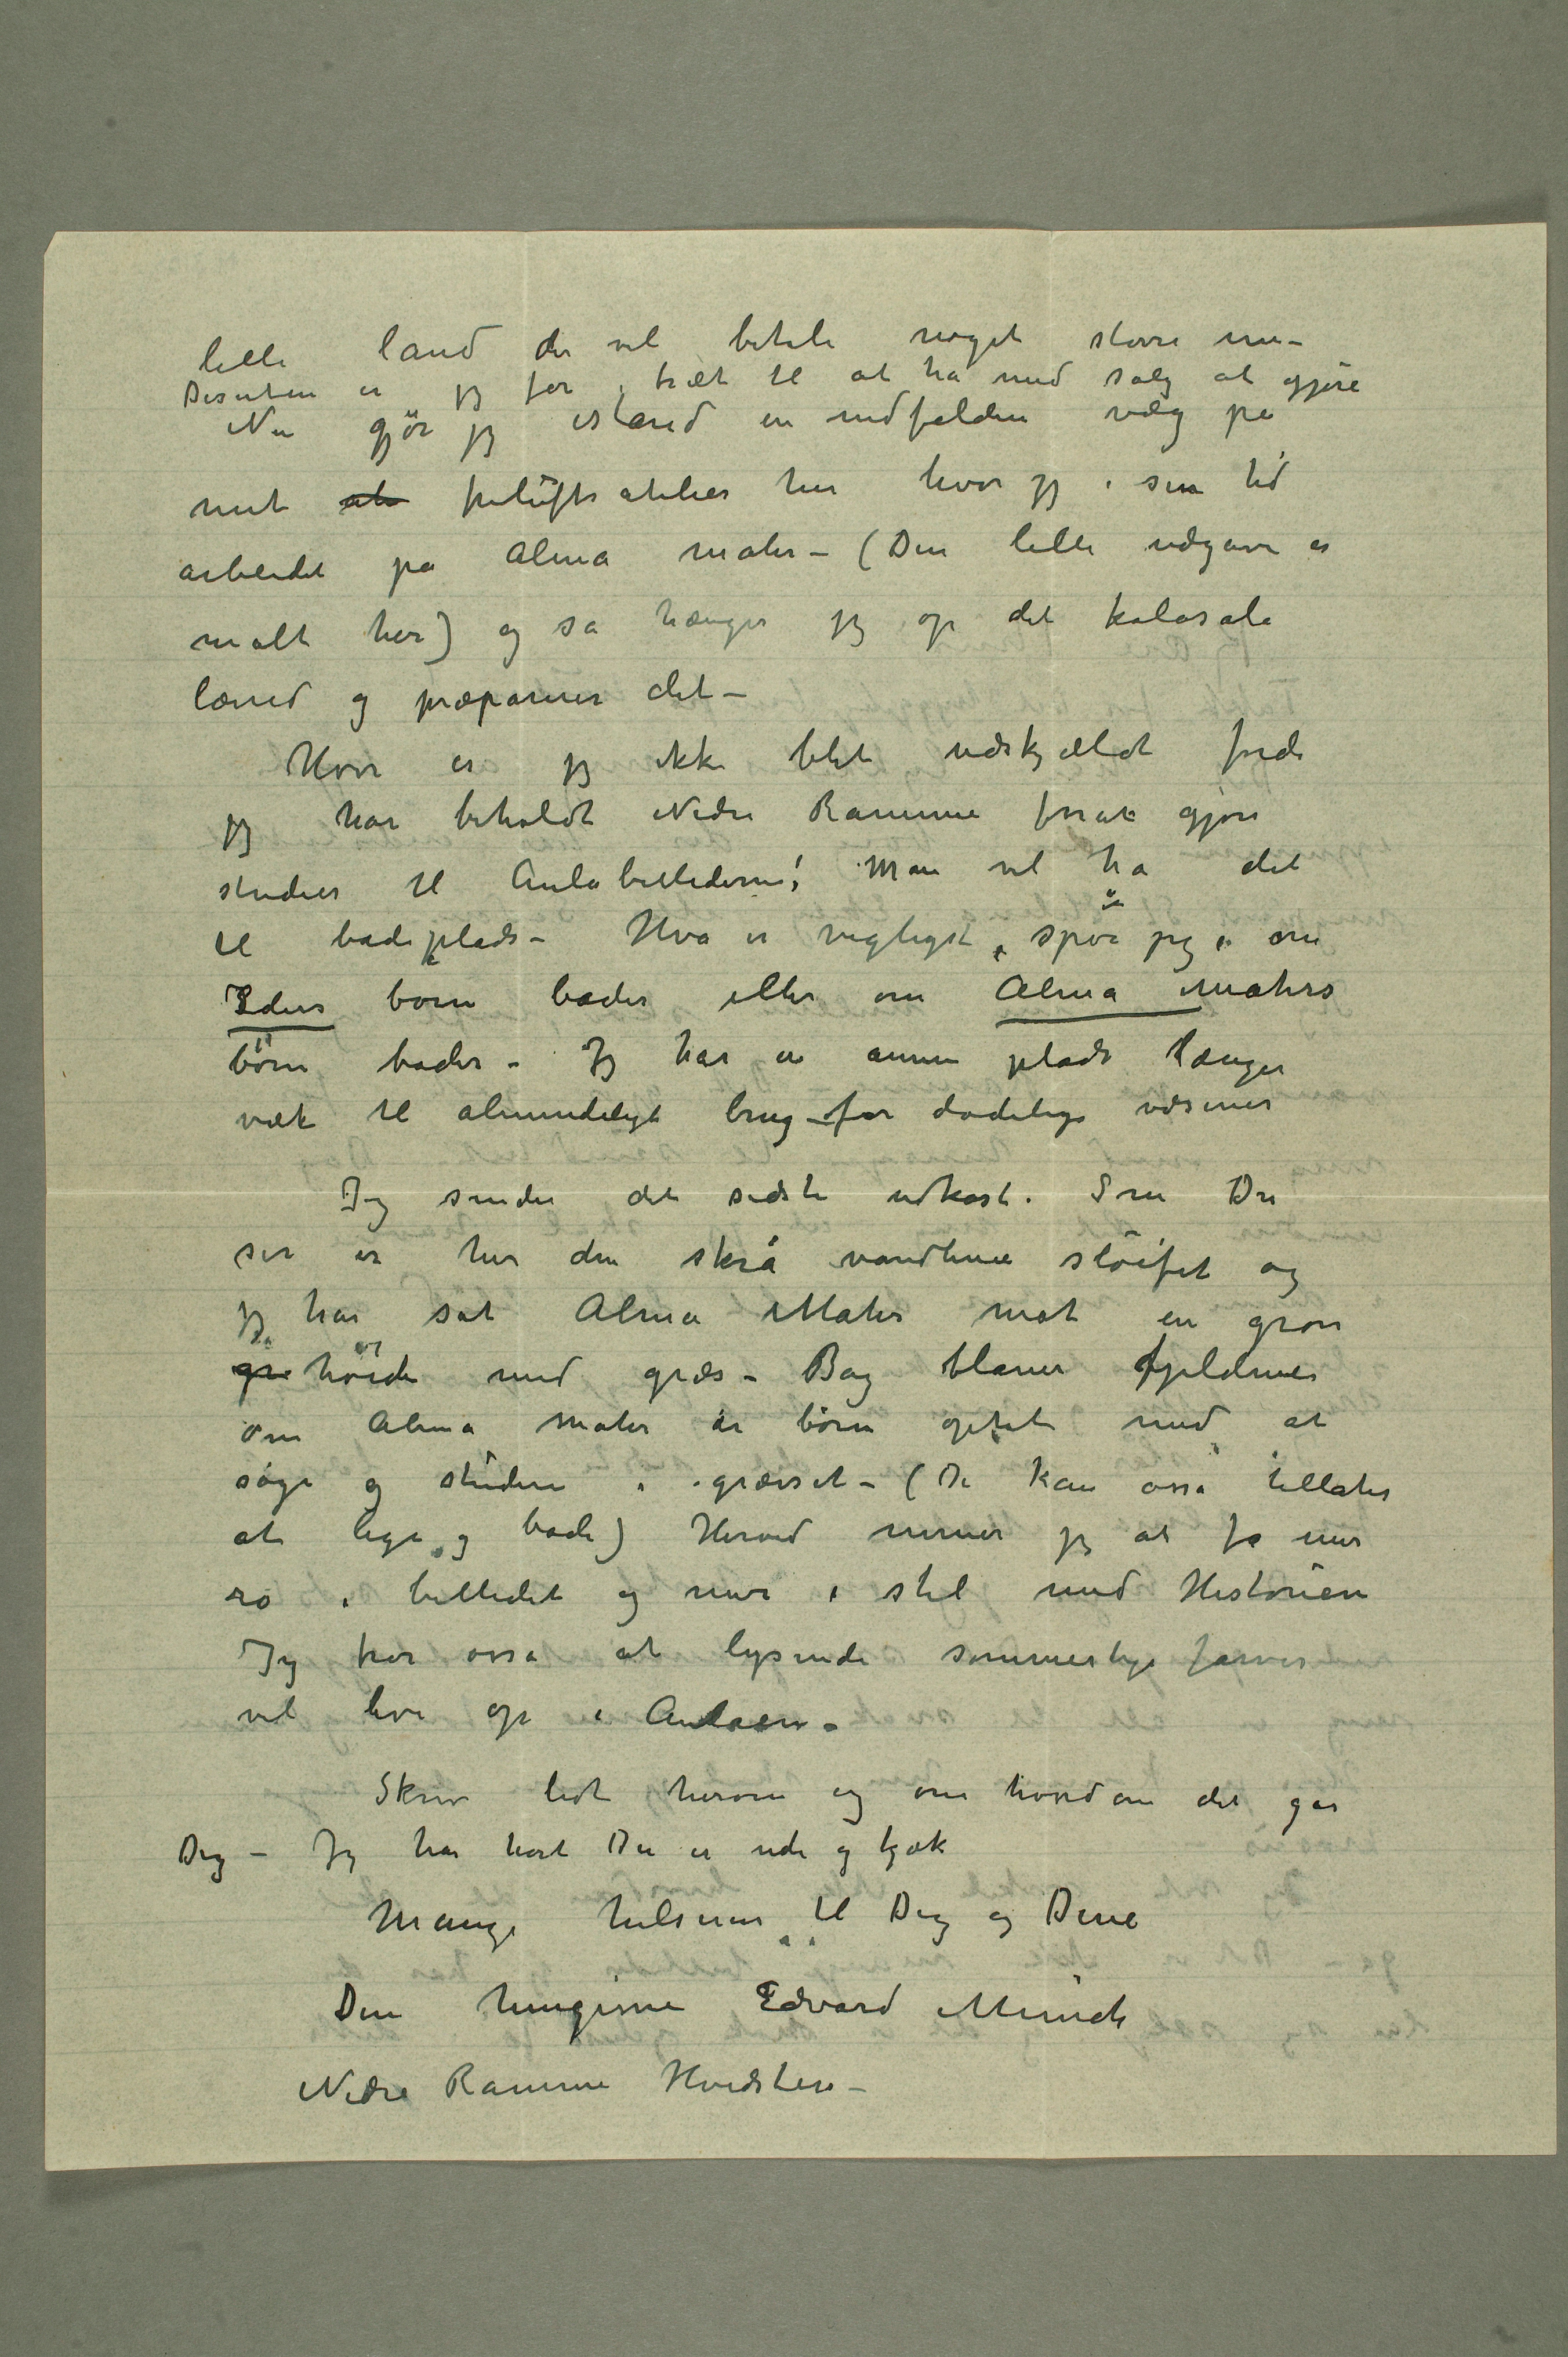 lille land der vil betale noget større nu –
Desuten er jeg for træt til at ha med salg at gjøre
Nu gjør jeg istand en nedfalden væg på
mit at friluftsatelier her hvor jeg i sin tid
arbeidet på Alma mater – (Den lille udgave er
malt her) og så hænger jeg op det kolosale
lærred og præparerer det –
Hvor er jeg ikke blet udskjældt fordi
jeg har beholdt Nedre Ramme forat gjøre
studier til Aulabillederne! Man vil ha det
til badeplads – Hva er vigtigst, spør jeg, om
Eders børn bader eller om Alma Maters
børn bader – Jeg har en annen plads længer
væk til almindeligt brug – for dødelige væsener
Jeg sender det sidste udkast. Som Du
ser er her den skrå vandlinie sløifet og
jeg har sat Alma Mater mot en grøn
gr høide med græs – Bag blaner fjeldene
Om Alma Mater er børn optat med at
søge og studere i græsset – (De kan osså tillates
at lege og bade) Herved mener jeg at få mer
ro i billedet og mer i stil med Historien
Jeg tror osså at lysende sommerlige farver
vil live op i Aulaen –
Skriv lidt herom og om hvordan det går
Dig – Jeg har hørt Du er ude og kjæk
Mange hilsener til Dig og Dine
Din hengivne Edvard Munch
Nedre Ramme Hvidsten –